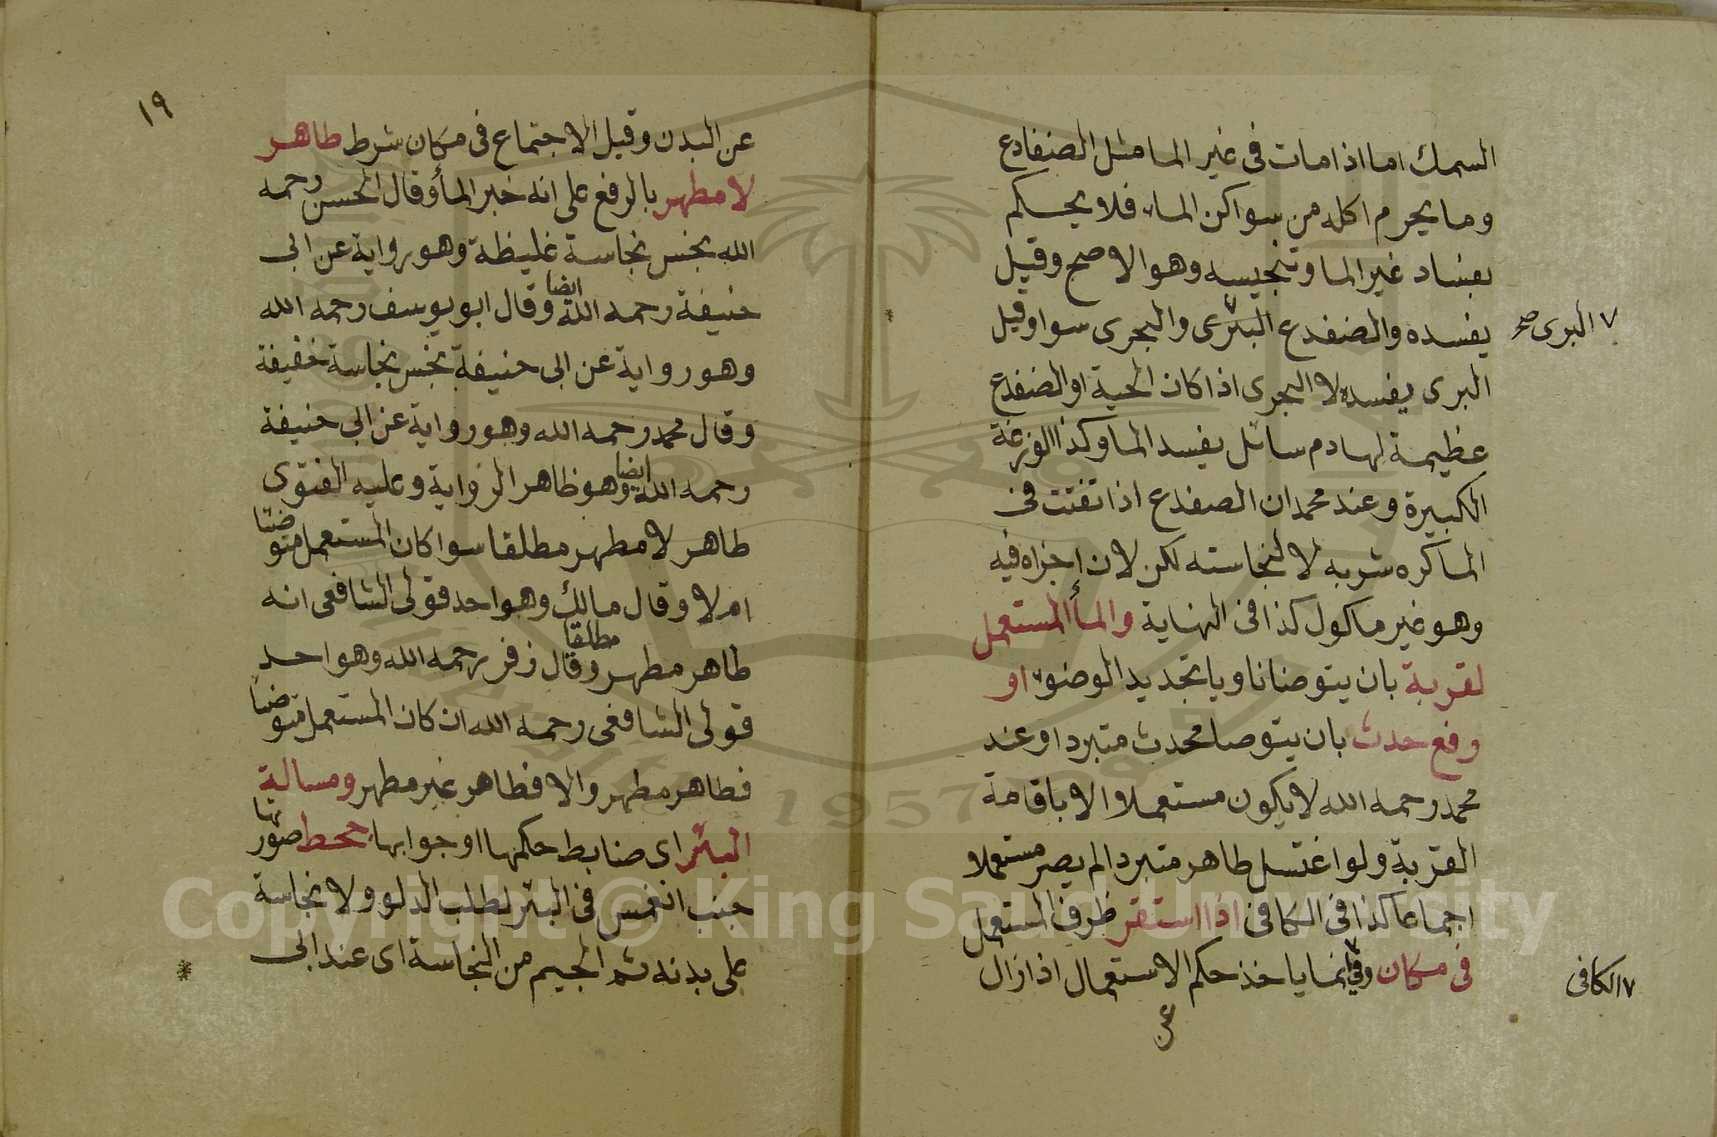 السمك اما اذا مات فى غير الما مثل الضفادع
وما يحرم اكله من سواكن الماء فلا يحكم
بفساد غير الما وتنجيسه وهو الاصح وقيل
يفسده والضفدع البرى والبحرى سوا وقيل
٧ البرى صح
البرى يفسده لا البحرى اذا كان الحية او الضفدع
عظيمة لها دم سائل يفسد الما وكذا الوزغة
الكبيرة وعند محمد ان الضفدع اذا تفتت فى
الما كره شربه لا لنجاسته لكن لان اجزاه فيه
وهو غير ماكول كذا فى النهاية والمأ المستعمل
لقربة بان يتوضا ناويا تجديد الوضوء او
رفع حدث بان يتوضا محدث متبردا وعند
محمد رحمه الله لا يكون مستعملا الا باقامة
القربة ولو اغتسل طاهر متبردا لم يصر مستعملا
اجماعا كذا فى الكافى اذا استقر ظرف المستعمل
فى مكان وفى انما ياخذ حكم الاستعمال اذا زال
٧ الكافى
عن
١٩
عن البدن وقيل الاجتماع فى مكان شرط طاهر
لا مطهر بالرفع على انه خبر المأ وقال الحسن رحمه
الله نجس نجاسة غليظة وهو رواية عن ابى
حنيفة رحمه الله ايضا وقال ابو يوسف رحمه الله
وهو رواية عن ابى حنيفة نجس نجاسة خفيفة
وقال محمد رحمه الله وهو رواية عن ابى حنيفة
رحمه الله ايضا وهو ظاهر الرواية وعليه الفتوى
طاهر لا مطهر مطلقا سوا كان المستعمل متوضئا
ام لا وقال مالك وهو احد قولى الشافعى انه
طاهر مطهر مطلقا وقال زفر رحمه الله وهو احد
قولى الشافعى رحمه الله ان كان المستعمل متوضئا
فطاهر مطهر والا فطاهر غير مطهر ومسالة
البئر اى ضابط حكمها او جوابها جحط صورتها
جنب انغمس فى البئر لطلب الدلو ولا نجاسة
على بدنه ثم الجيم من النجاسة اى عند ابى
Copyright © King Saud University
1957